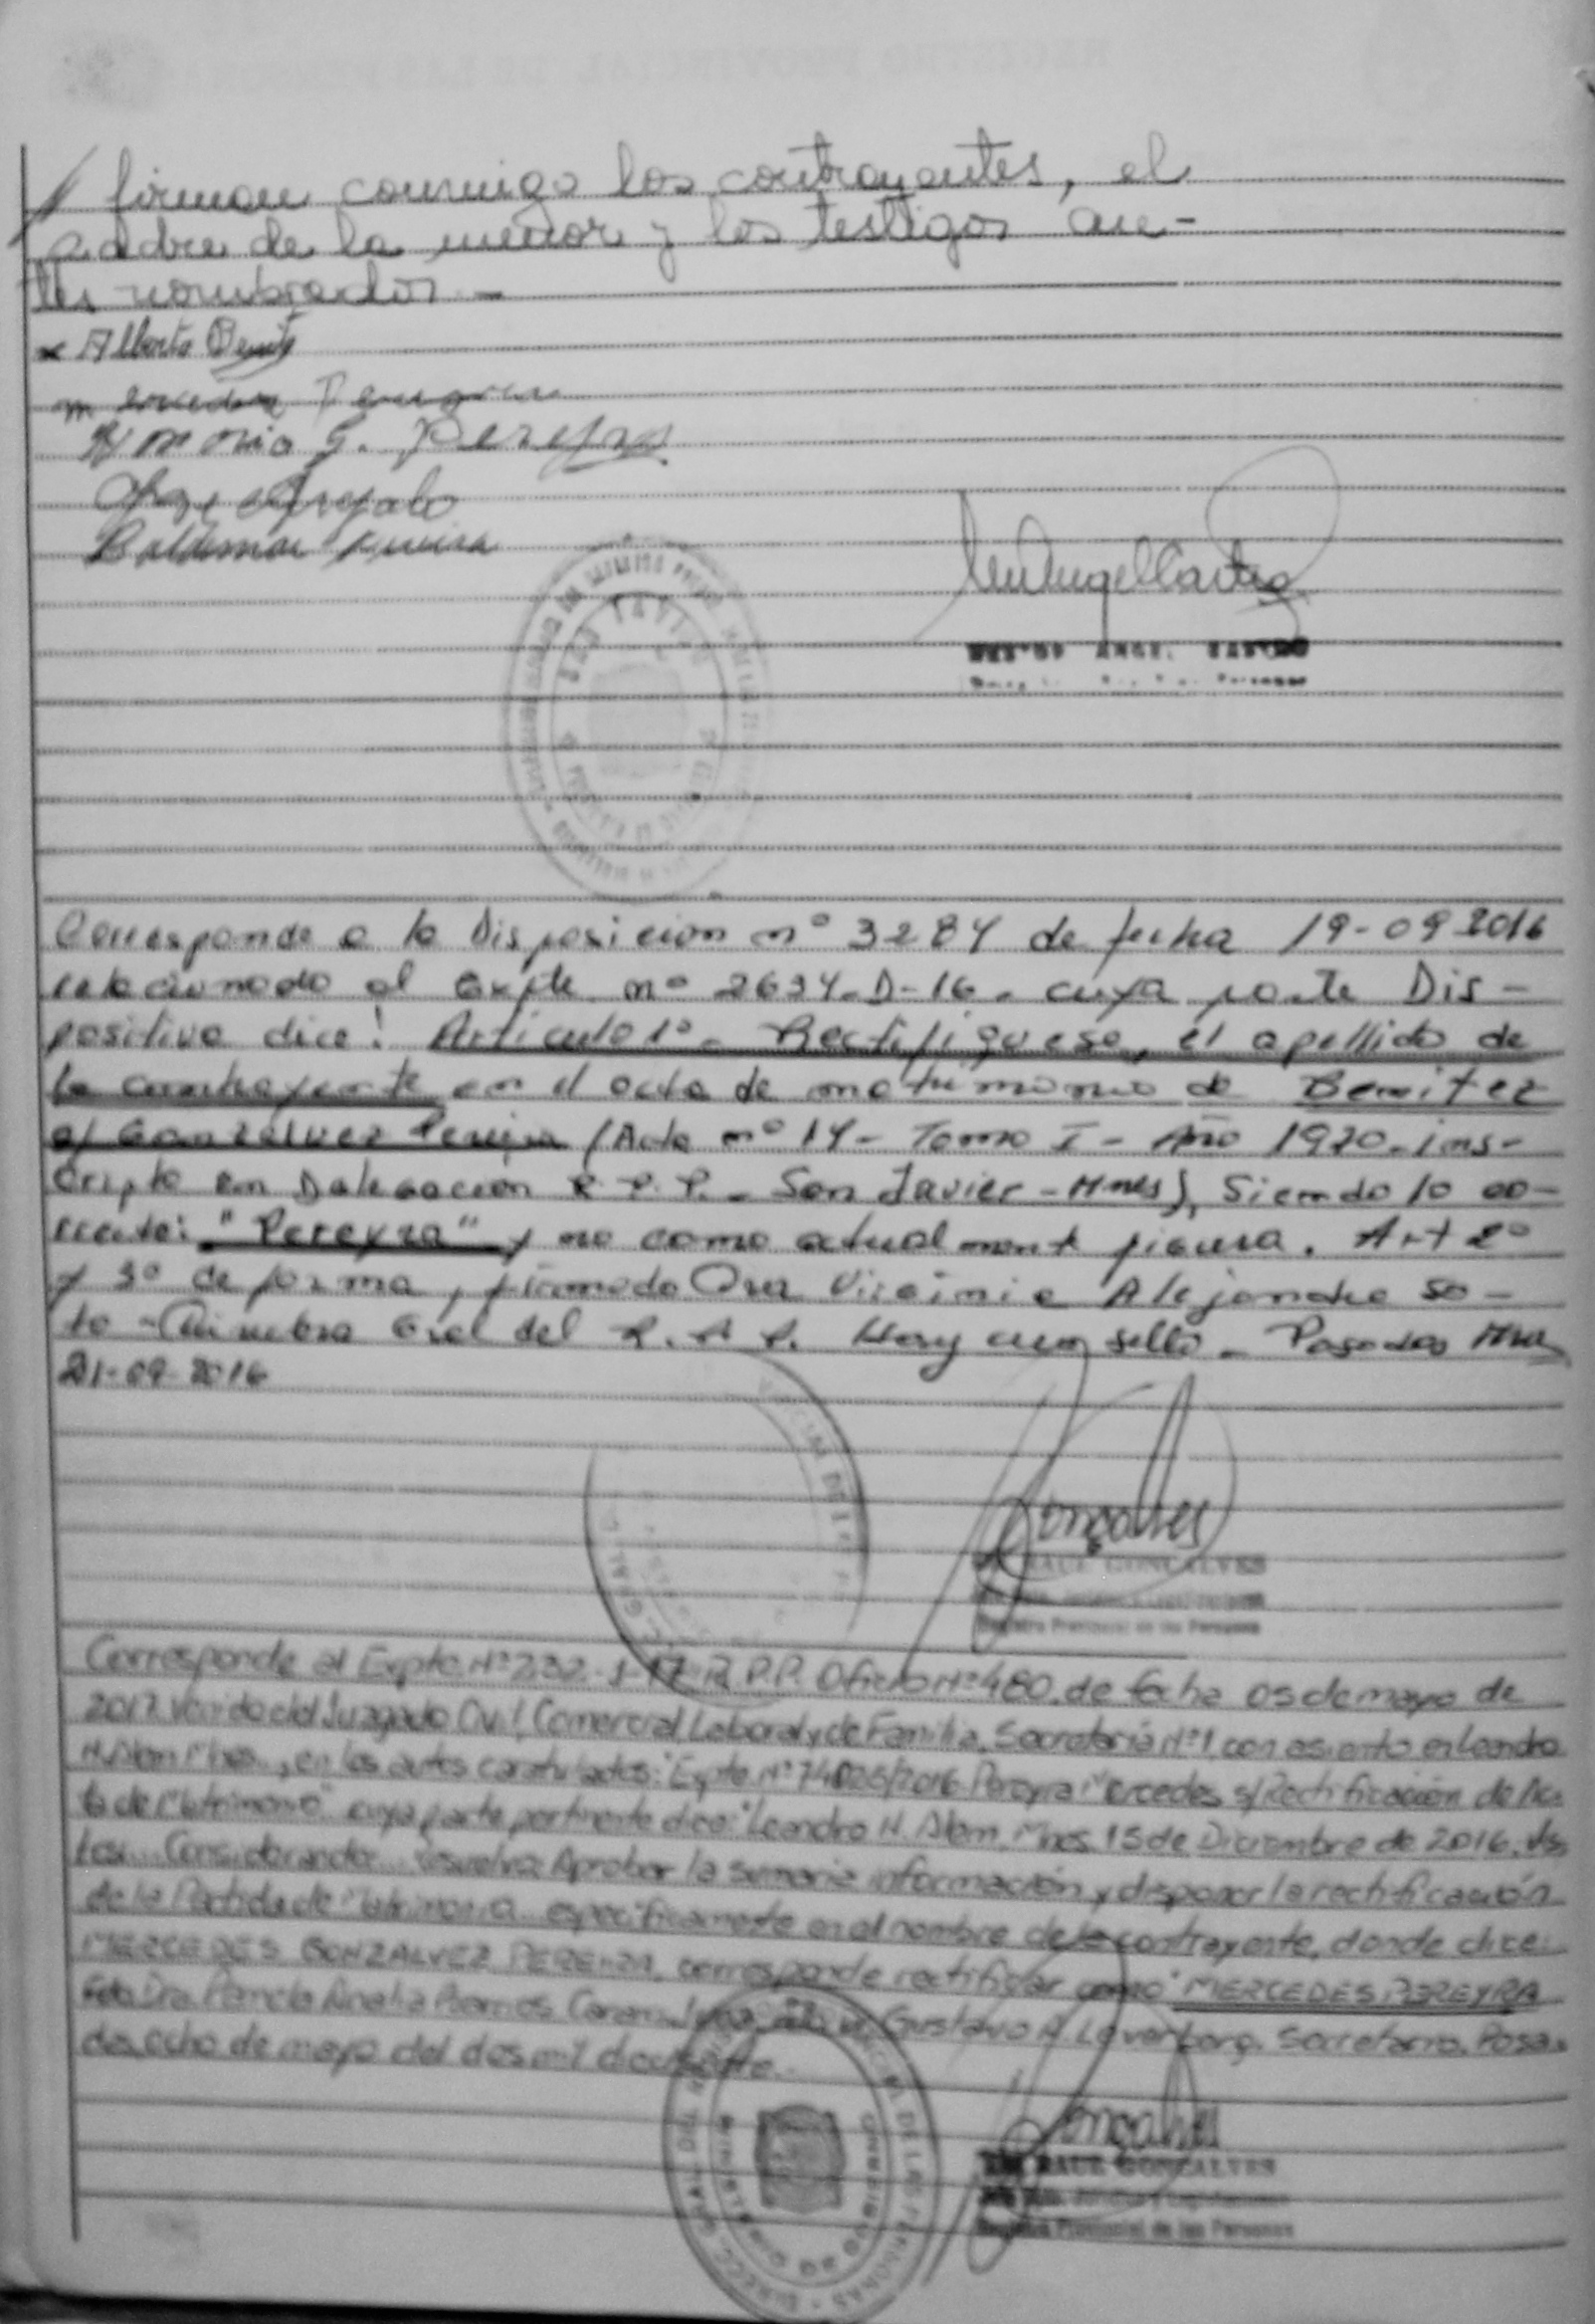 firman conmigo los contrayentes, el
padre de la menor y los testigos an-
tes nombrados.-
Alberto Benitez
Mercedes
Antonio G. Pereyra
Baldimar
Corresponde a la Disposicion nº 3284 de fecha 19-09-2016
relacionado al Expte nº 2634-D-16. cuya parte Dis-
positiva dice: Articulo 1º- Rectifiquese, el apellido de
la contrayente en el acta de matrimonio de Benitez
c/ Gonzalvez Pereira (Acta nº 14- Tomo I- Año 1970-ins-
cripto en Delegación R.P.P.- San Javier-Mnes), Siendo lo co-
rrecto: "Pereyra" y no como actualment figura. Art 2º
y 3º de forma, firmado Dra Virginia Alejandra So-
to - Directora Gral del R.P.P. Hay un sello- Posadas Mnes
21-09-2016
Gonçalves
RAUL GONCALVES
Registro Provincial de las Personas
Corresponde al Expte. Nº 232-J-17-R.P.P. Oficio Nº 480, de fecha 05 de mayo de
2017. Venido del Juzgado Civil, Comercial, Laboral y de Familia, Secretaría Nº 1, con asiento en Leandro
N. Alem Mnes., en los autos caratulados: "Expte. Nº 74025/2016 Pereyra Mercedes s/Rectificación de Ac-
ta de Matrimonio" cuya parte pertinente dice: "Leandro N. Alem, Mnes. 15 de Diciembre de 2016. Vis
tos: Considerando: Resuelvo: Aprobar la sumaria información y disponer la rectificación
de la Partida de Matrimonio específicamente en el nombre de la contrayente, donde dice:
MERCEDES GONZALVEZ PEREIRA, corresponde rectificar como "MERCEDES PEREYRA
Fdo Dra. Pamela Analia Gustavo A. Secretario. Posa-
das, ocho de mayo del dos mil diecisiete.-
Gonçalves
RAUL GONCALVES
Registro Provincial de las Personas